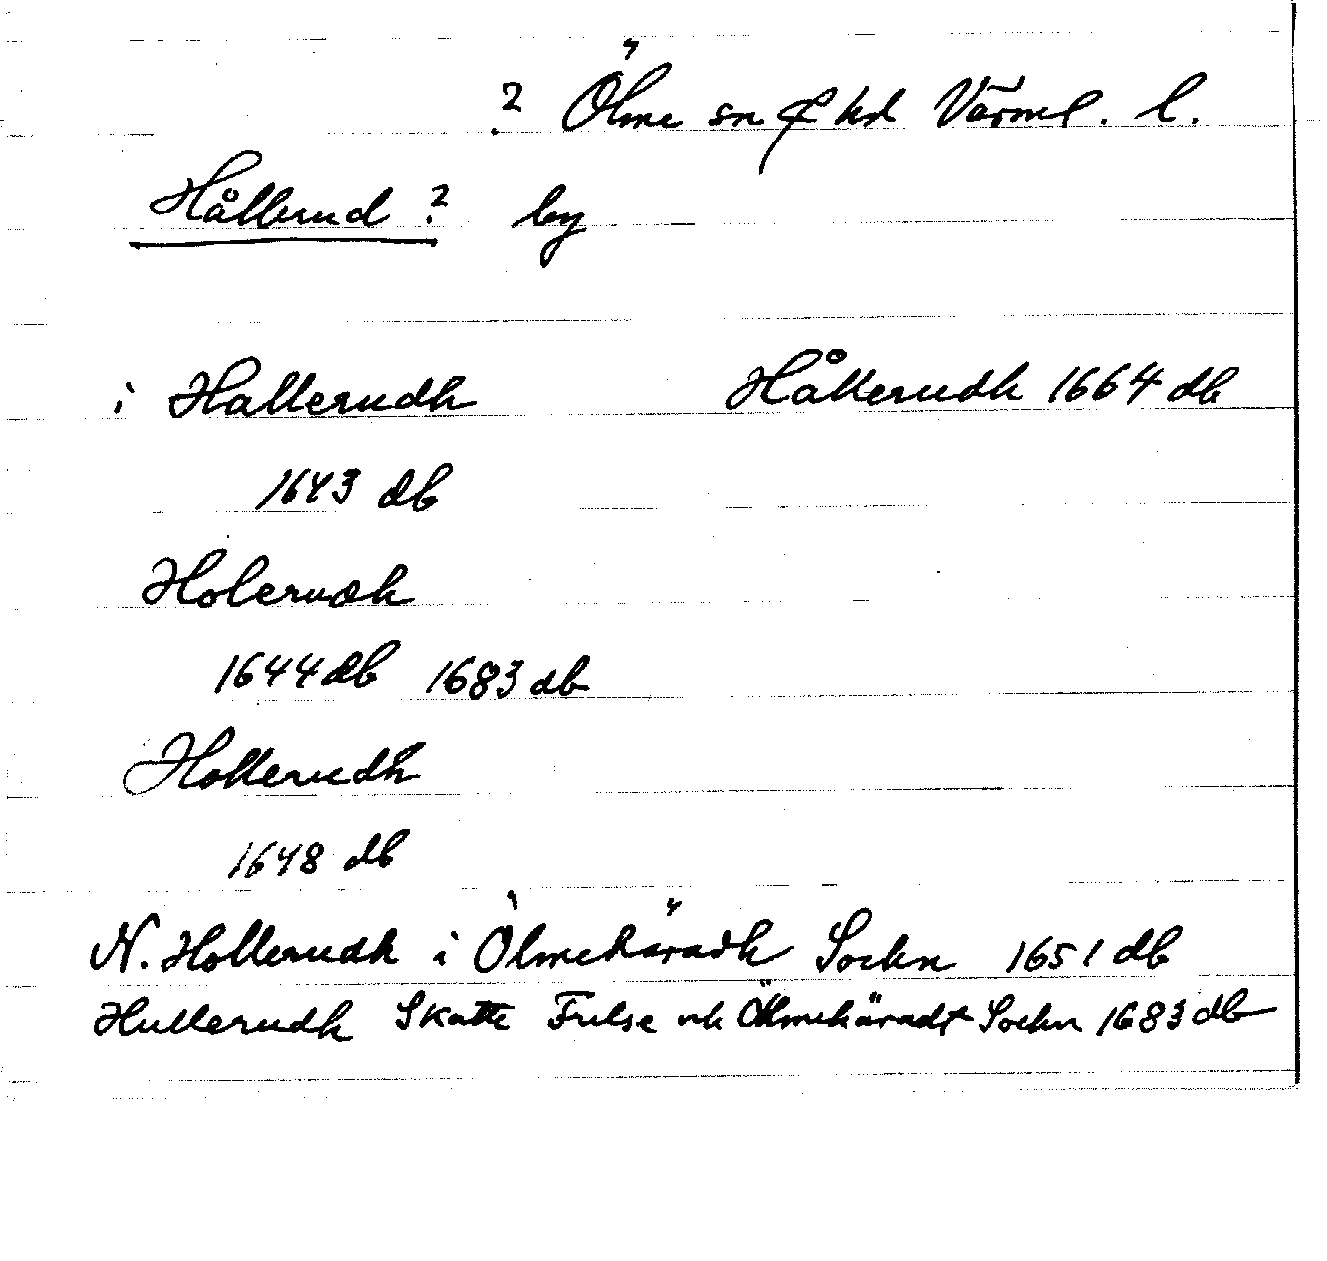 ? Ölme sn & hd Värml. l.
Hållerud ? by
i Hallerudh Hållerudh 1664 db
1643 db
Holerudh
1644 db 1683 db
Hollerudh
1648 db
N. Hollerudh i Ölmehäradh Sochn 1651 db
Hullerudh Skatte Frelse uti Ölmehäradt Sochn 1683 db